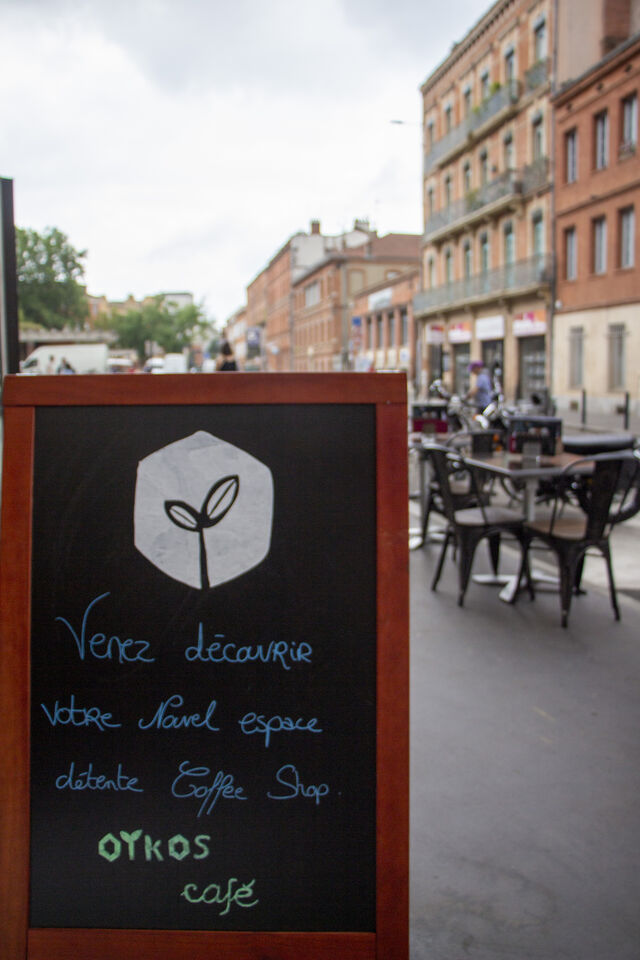 Venez découvrir
votre Nouvel espace
détente Coffee Shop.
OYKOS
café